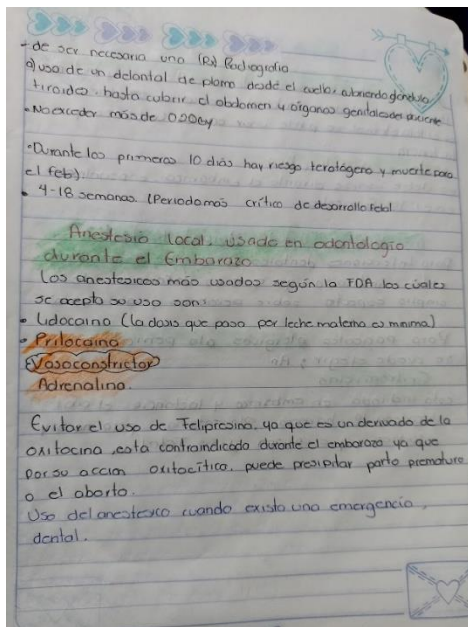 - de ser necesario una (Rx) Radiografia
a) uso de un delantal de plomo desde el cuello, cubriendo glandula
tiroides hasta cubrir el abdomen y órganos genitales del paciente
• No exceder más de 0.20Gy
• Durante los primeros 10 dias hay riesgo teratógeno y muerte para
el feto).
• 4-18 semanas. (Periodo mas crítico de desarrollo fetal
Anestesia local, usado en odontologia
durante el Embarazo
Los anestesicos más usados según la FDA los cuáles
se acepta su uso son:
• Lidocaina (la dosis que pasa por leche materna es minima)
• Prilocaina
Vasoconstrictor
Adrenalina.
Evitar el uso de Felipresina, ya que es un derivado de la
oxitocina, esta contraindicado durante el embarazo ya que
por su accion oxitocítica, puede presipitar parto prematuro
o el aborto.
Uso del anestesico cuando exista una emergencia
dental.